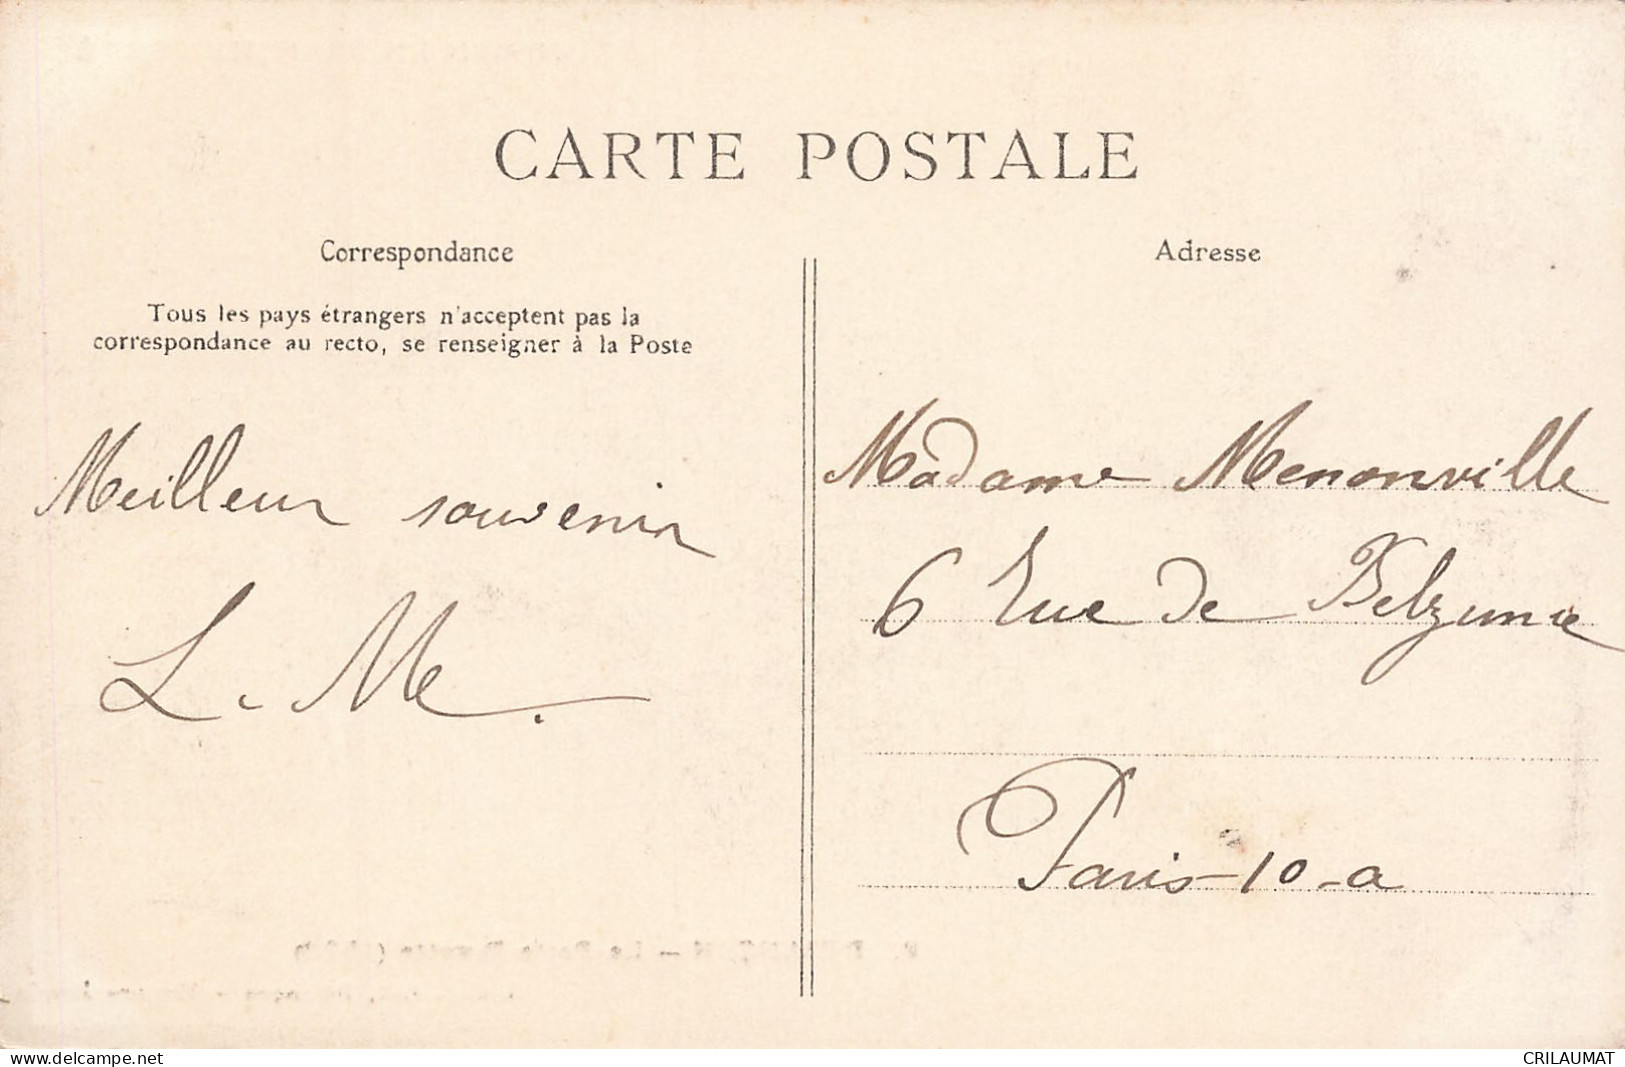 CARTE POSTALE
Correspondance
Tous les pays étrangers n'acceptent pas la
correspondance au recto, se renseigner à la Poste
Meilleur souvenir
L. M.
Adresse
Madame Menonville
6 Rue de Belzunce
Paris-10-a
www.delcampe.net
CRILAUMAT